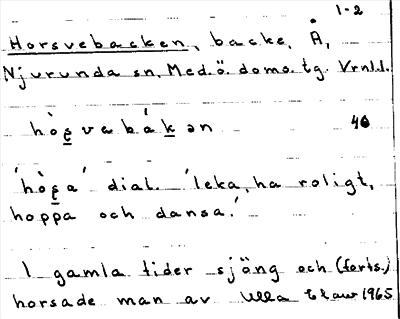 1-2
Horsvebacken, backe, Å,
Njurunda sn, Med.ö. doms. tg. Vrnl.l.
hòs̨vebákən 46
'hòs̨a' dial. 'leka, ha roligt,
hoppa och dansa.'
I gamla tider sjöng och (forts.)
horsade man av Ulla 1965